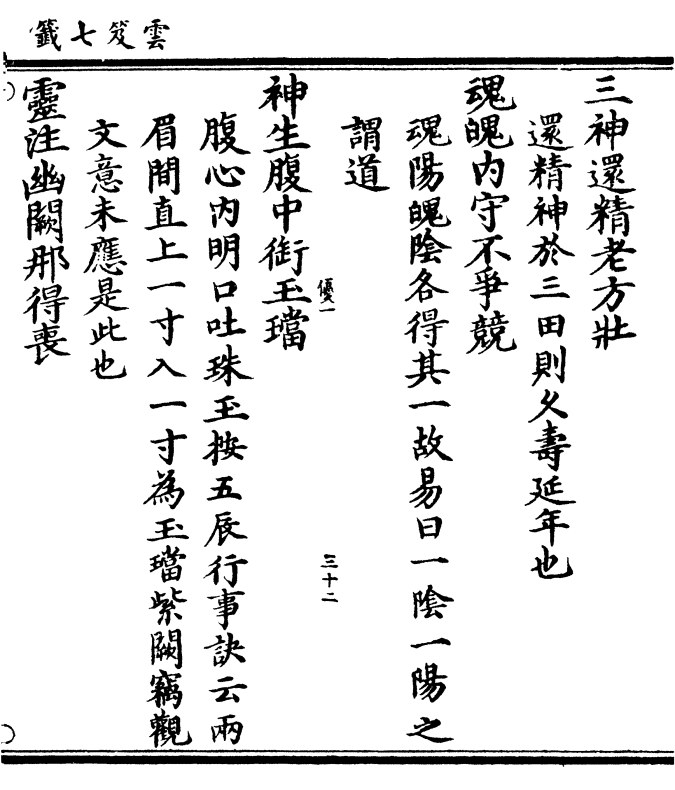 雲笈七籤
三神還精老方壯
還精神於三田則久壽延年也
魂魄内守不爭競
魂陽魄陰各得其一故易曰一陰一陽之
謂道
優一
三十二
神生腹中銜玉璫
腹心内明口吐珠玉按五辰行事訣云兩
眉間直上一寸入一寸為玉璫紫闕竊觀
文意未應是此也
靈注幽闕那得喪